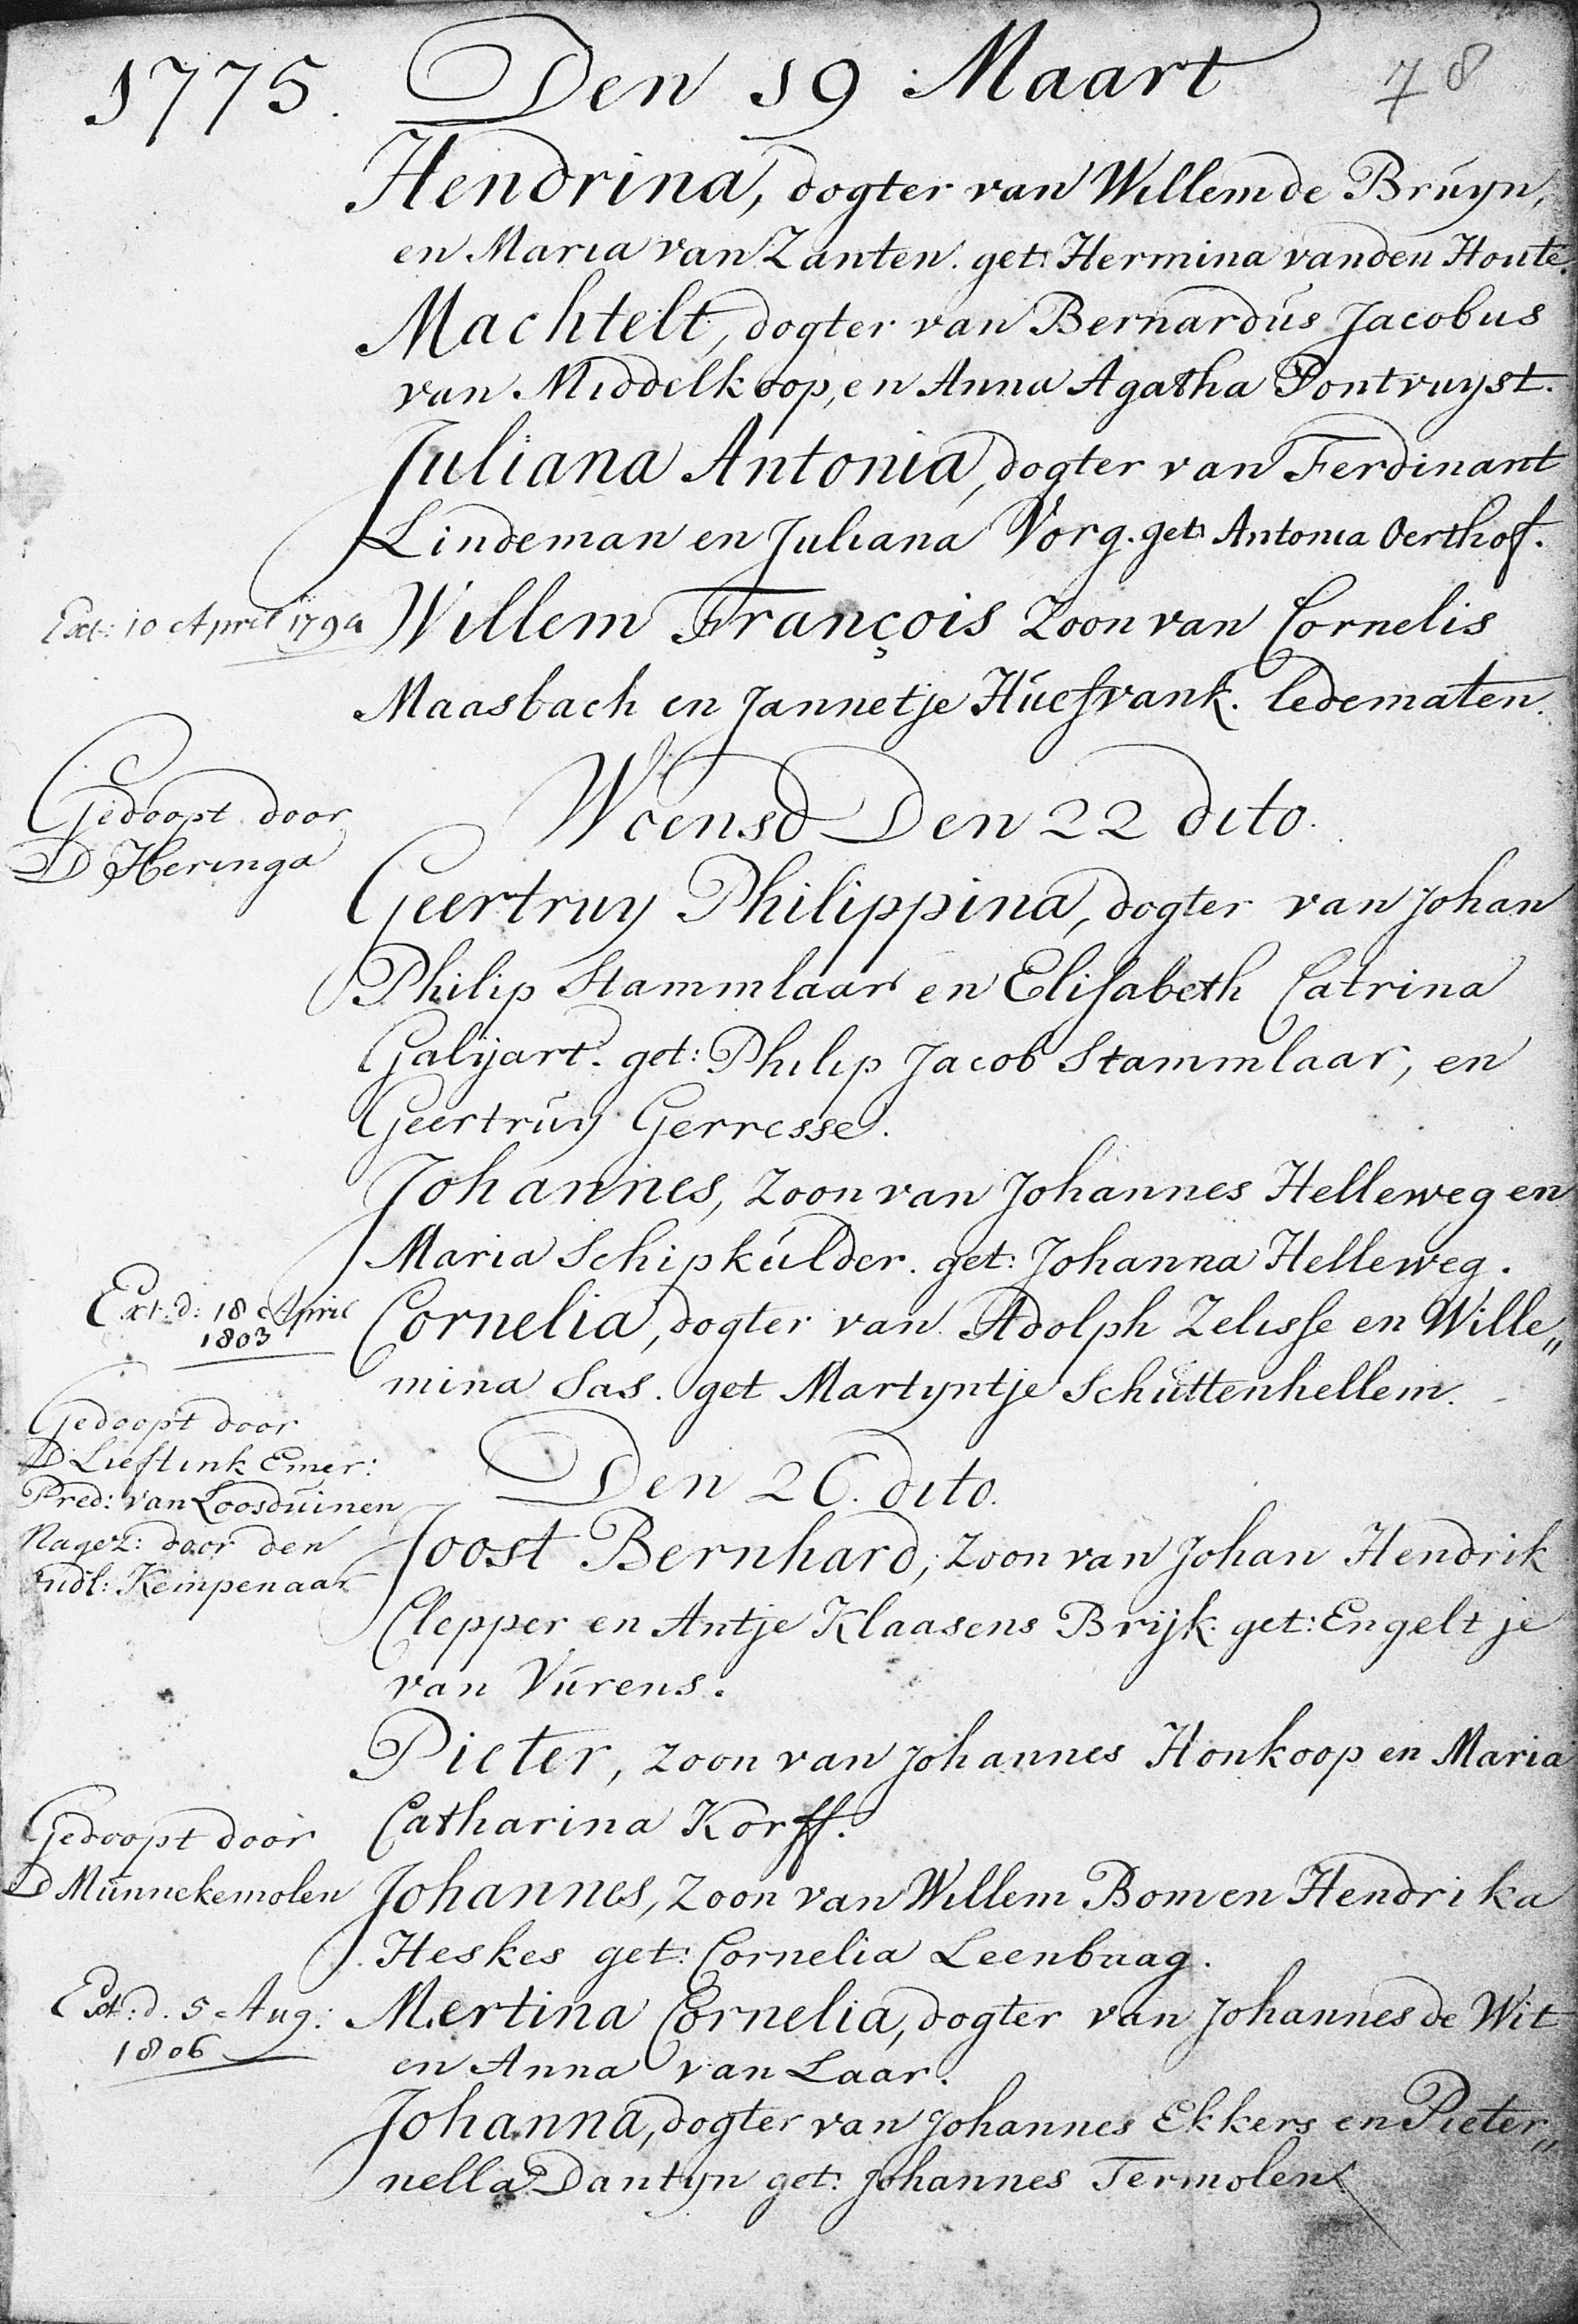 1775. Den 19 Maart 78
Hendrina, dogter van Willem de Bruyn,
en Maria van Zanten. get: Hermina van den Houte.
Machtelt, dogter van Bernardus Jacobus
van Middelkoop, en Anna Agatha Pontvuyst.
Juliana Antonia, dogter van Ferdinant
Lindeman en Juliana Vorg. get: Antonia Oerthof.
Ext: 10 April 1794
Willem François Zoon van Cornelis
Maasbach en Jannetje Huesvank. ledematen.
Gedoopt door
D Heringa
Woensd Den 22 dito.
Geertruy Philippina, dogter van Johan
Philip Stammlaar en Elisabeth Catrina
Galijart. get: Philip Jacob Stammlaar, en
Geertruy Gerresse.
Johannes, Zoon van Johannes Helleweg en
Maria Schipkulder. get: Johanna Helleweg.
Ext: d: 18 April
1803
Cornelia, dogter van Adolph Zelisse en Wille„
mina Sas. get Martyntje Schuttenhellem.
Gedoopt door
D Lieftink Emer:
Pred: van Loosduinen
Nagez: door den
Kempenaar
Den 26. dito.
Joost Bernhard, Zoon van Johan Hendrik
Clepper en Antje Klaasens Brijk. get: Engeltje
van Vurens.
Pieter, zoon van Johannes Honkoop en Maria
Catharina Korff.
Gedoopt door
D Munnekemolen
Johannes, Zoon van Willem Bom en Hendrika
Heskes get: Cornelia Leenbaag.
Ext: d. 5 Aug:
1806
Mertina Cornelia, dogter van Johannes de Wit
en Anna van Laar.
Johanna, dogter van Johannes Ekkers en Pieter„
nella Dantyn get: Johannes Termolen.